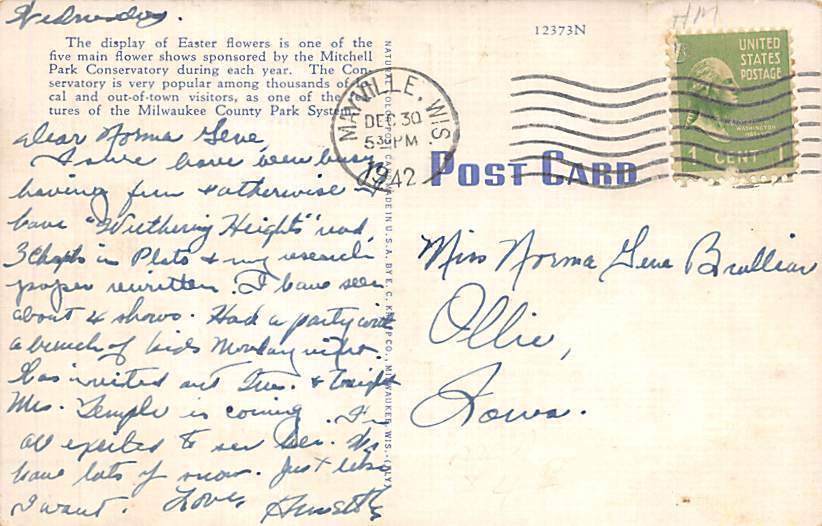 Wednesday.
HM
12373N
The display of Easter flowers is one of the
five main flower shows sponsored by the Mitchell
Park Conservatory during each year. The Con-
servatory is very popular among thousands of
cal and out-of-town visitors, as one of the
tures of the Milwaukee County Park System.
NATURAL COLOR POST CARD MADE IN U.S.A. BY E. C. KROPP CO., MILWAUKEE, WIS. (ONLY)
MAYVILLE, WIS.
DEC 30
530 PM
1942
UNITED
STATES
POSTAGE
WASHINGTON
1 CENT 1
POST CARD
Dear Norma Gene,
I sure have been busy
having fun & otherwise I
have "Wuthering Heights" read,
3 Chapts in Plato & my research
paper rewritten. I have seen
about 4 shows. Had a party with
a bunch of kids Monday nite.
Was invited out Tues. & tonight
Mrs. Temple is coming. I'm
all excited to see her. We
have lots of snow. Just like
I want. Love,
Miss Norma Gene Brallier
Ollie,
Iowa.